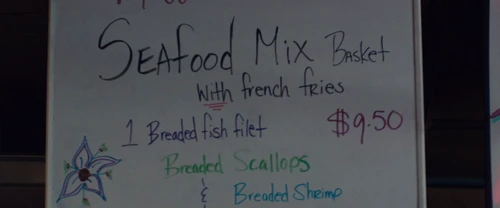 SEAfood Mix BASKET
With french fries
1 Breaded fish filet $9.50
Breaded Scallops
& Breaded Shrimp